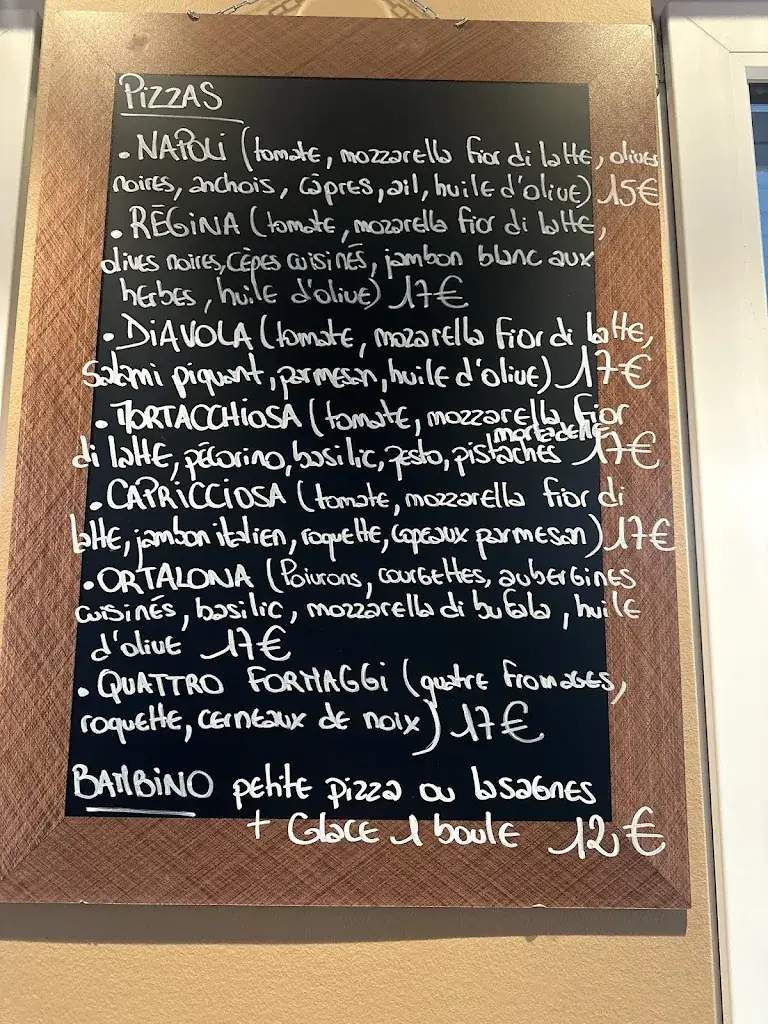 PIZZAS
• NAPOLI (tomate, mozzarella fior di latte, olives
noires, anchois, câpres, ail, huile d'olive) 15€
• RÉGINA (tomate, mozarella fior di latte,
olives noires, cèpes cuisinés, jambon blanc aux
herbes, huile d'olive) 17€
• DIAVOLA (tomate, mozarella fior di latte,
Salami piquant, parmesan, huile d'olive) 17€
• MORTACCHIOSA (tomate, mozzarella fior
mortadelle
di latte, pécorino, basilic, pesto, pistaches 17€
• CAPRICCIOSA (tomate, mozzarella fior di
latte, jambon italien, roquette, copeaux parmesan) 17€
• ORTALONA (Poivrons, courgettes, aubergines
cuisinés, basilic, mozzarella di bufala, huile
d'olive 17€
• QUATTRO FORMAGGI (quatre fromages,
roquette, cerneaux de noix) 17€
BAMBINO petite pizza ou lasagnes
+ Glace 1 boule 12€